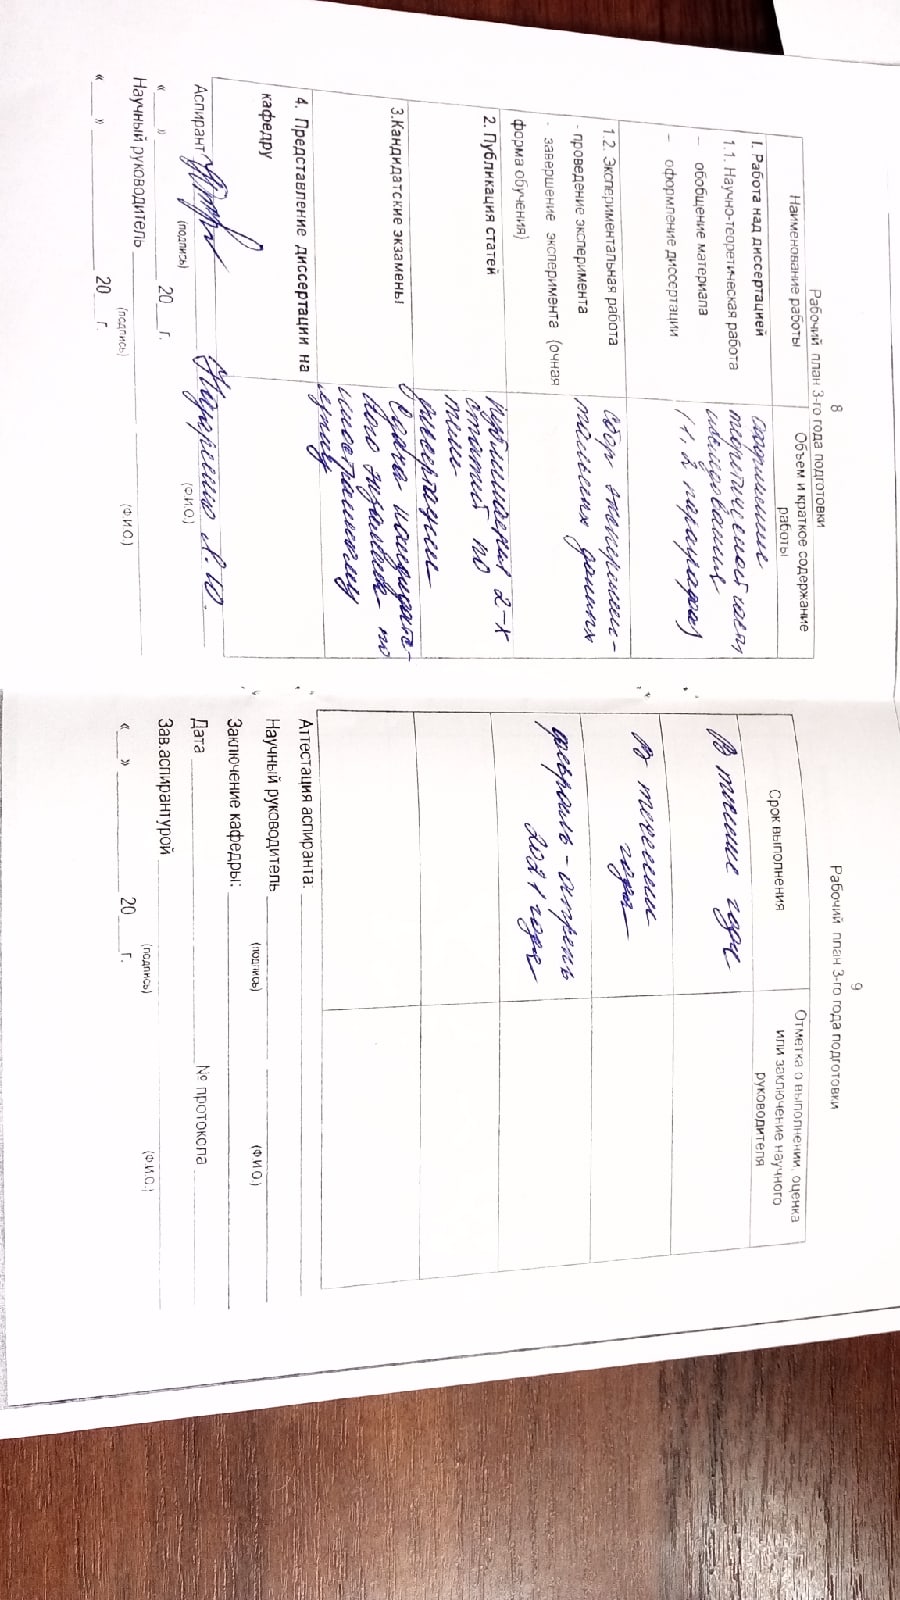 8
Рабочий план 3-го года подготовки
Наименование работы
Объем и краткое содержание
работы
I. Работа над диссертацией
1.1. Научно-теоретическая работа
– обобщение материала
– оформление диссертации
теоретической части
исследования
(1, 2 параграфа)
1.2. Экспериментальная работа
- проведение эксперимента
- завершение эксперимента (очная
форма обучения)
сбор эксперимен-
тальных данных
2. Публикация статей
публикация 2-х
статей по
теме
диссертации
3.Кандидатские экзамены
Сдача кандидатс-
кого экзамена по
иностранному
языку
4. Представление диссертации на
кафедру
Аспирант
(подпись)
(Ф.И.О.)
«___» ________ 20___г.
Научный руководитель
(подпись)
(Ф.И.О.)
«___» ________ 20___г.
9
Рабочий план 3-го года подготовки
Срок выполнения
Отметка о выполнении, оценка
или заключение научного
руководителя
В течение года
В течении
года
февраль - апрель
2021 года
Аттестация аспиранта:
Научный руководитель
(подпись)
(Ф.И.О.)
Заключение кафедры:
Дата
№ протокола
Зав.аспирантурой
(подпись)
(Ф.И.О.)
«___» ________ 20___г.